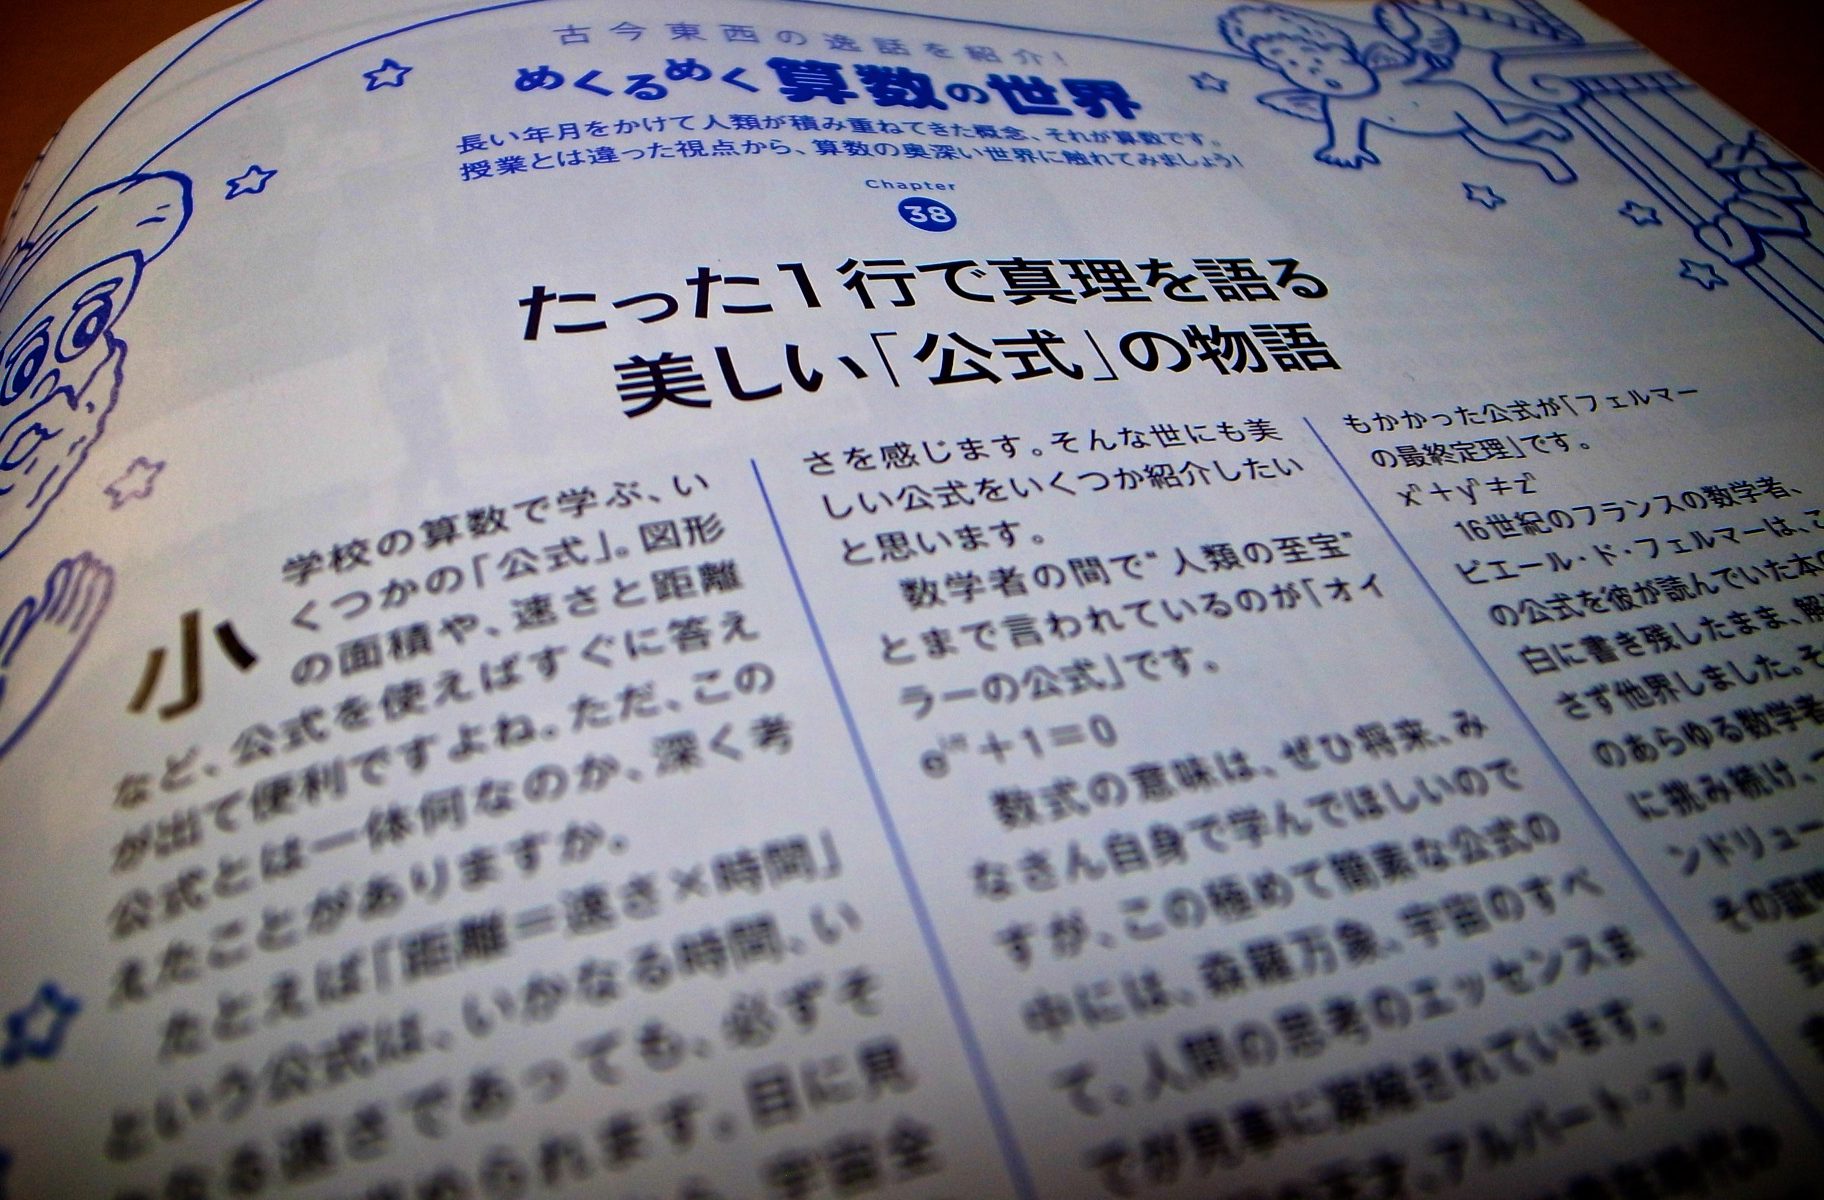 古今東西の逸話を紹介!
めくるめく算数の世界
長い年月をかけて人類が積み重ねてきた概念、それが算数です。
授業とは違った視点から、算数の奥深い世界に触れてみましょう!
Chapter
38
たった1行で真理を語る
美しい「公式」の物語
小学校の算数で学ぶ、い
くつかの「公式」。図形
の面積や、速さと距離
など、公式を使えばすぐに答え
が出て便利ですよね。ただ、この
公式とは一体何なのか、深く考
えたことがありますか。
たとえば「距離=速さ×時間」
という公式は、いかなる時間、い
かなる速さであっても、必ずそ
められます。目に見
宇宙全
さを感じます。そんな世にも美
しい公式をいくつか紹介したい
と思います。
数学者の間で"人類の至宝"
とまで言われているのが「オイ
ラーの公式」です。
e^{iπ}+1=0
数式の意味は、ぜひ将来、み
なさん自身で学んでほしいので
すが、この極めて簡素な公式の
中には、森羅万象、宇宙のすべ
て、人間の思考のエッセンスま
でが見事に凝縮されています。
天才、アルバート・アイ
もかかった公式が「フェルマー
の最終定理」です。
xⁿ+yⁿ≠zⁿ
16世紀のフランスの数学者、
ピエール・ド・フェルマーは、こ
の公式を彼が読んでいた本の
白に書き残したまま、解
さず他界しました。そ
のあらゆる数学者
に挑み続け、
ンドリュー
その証明